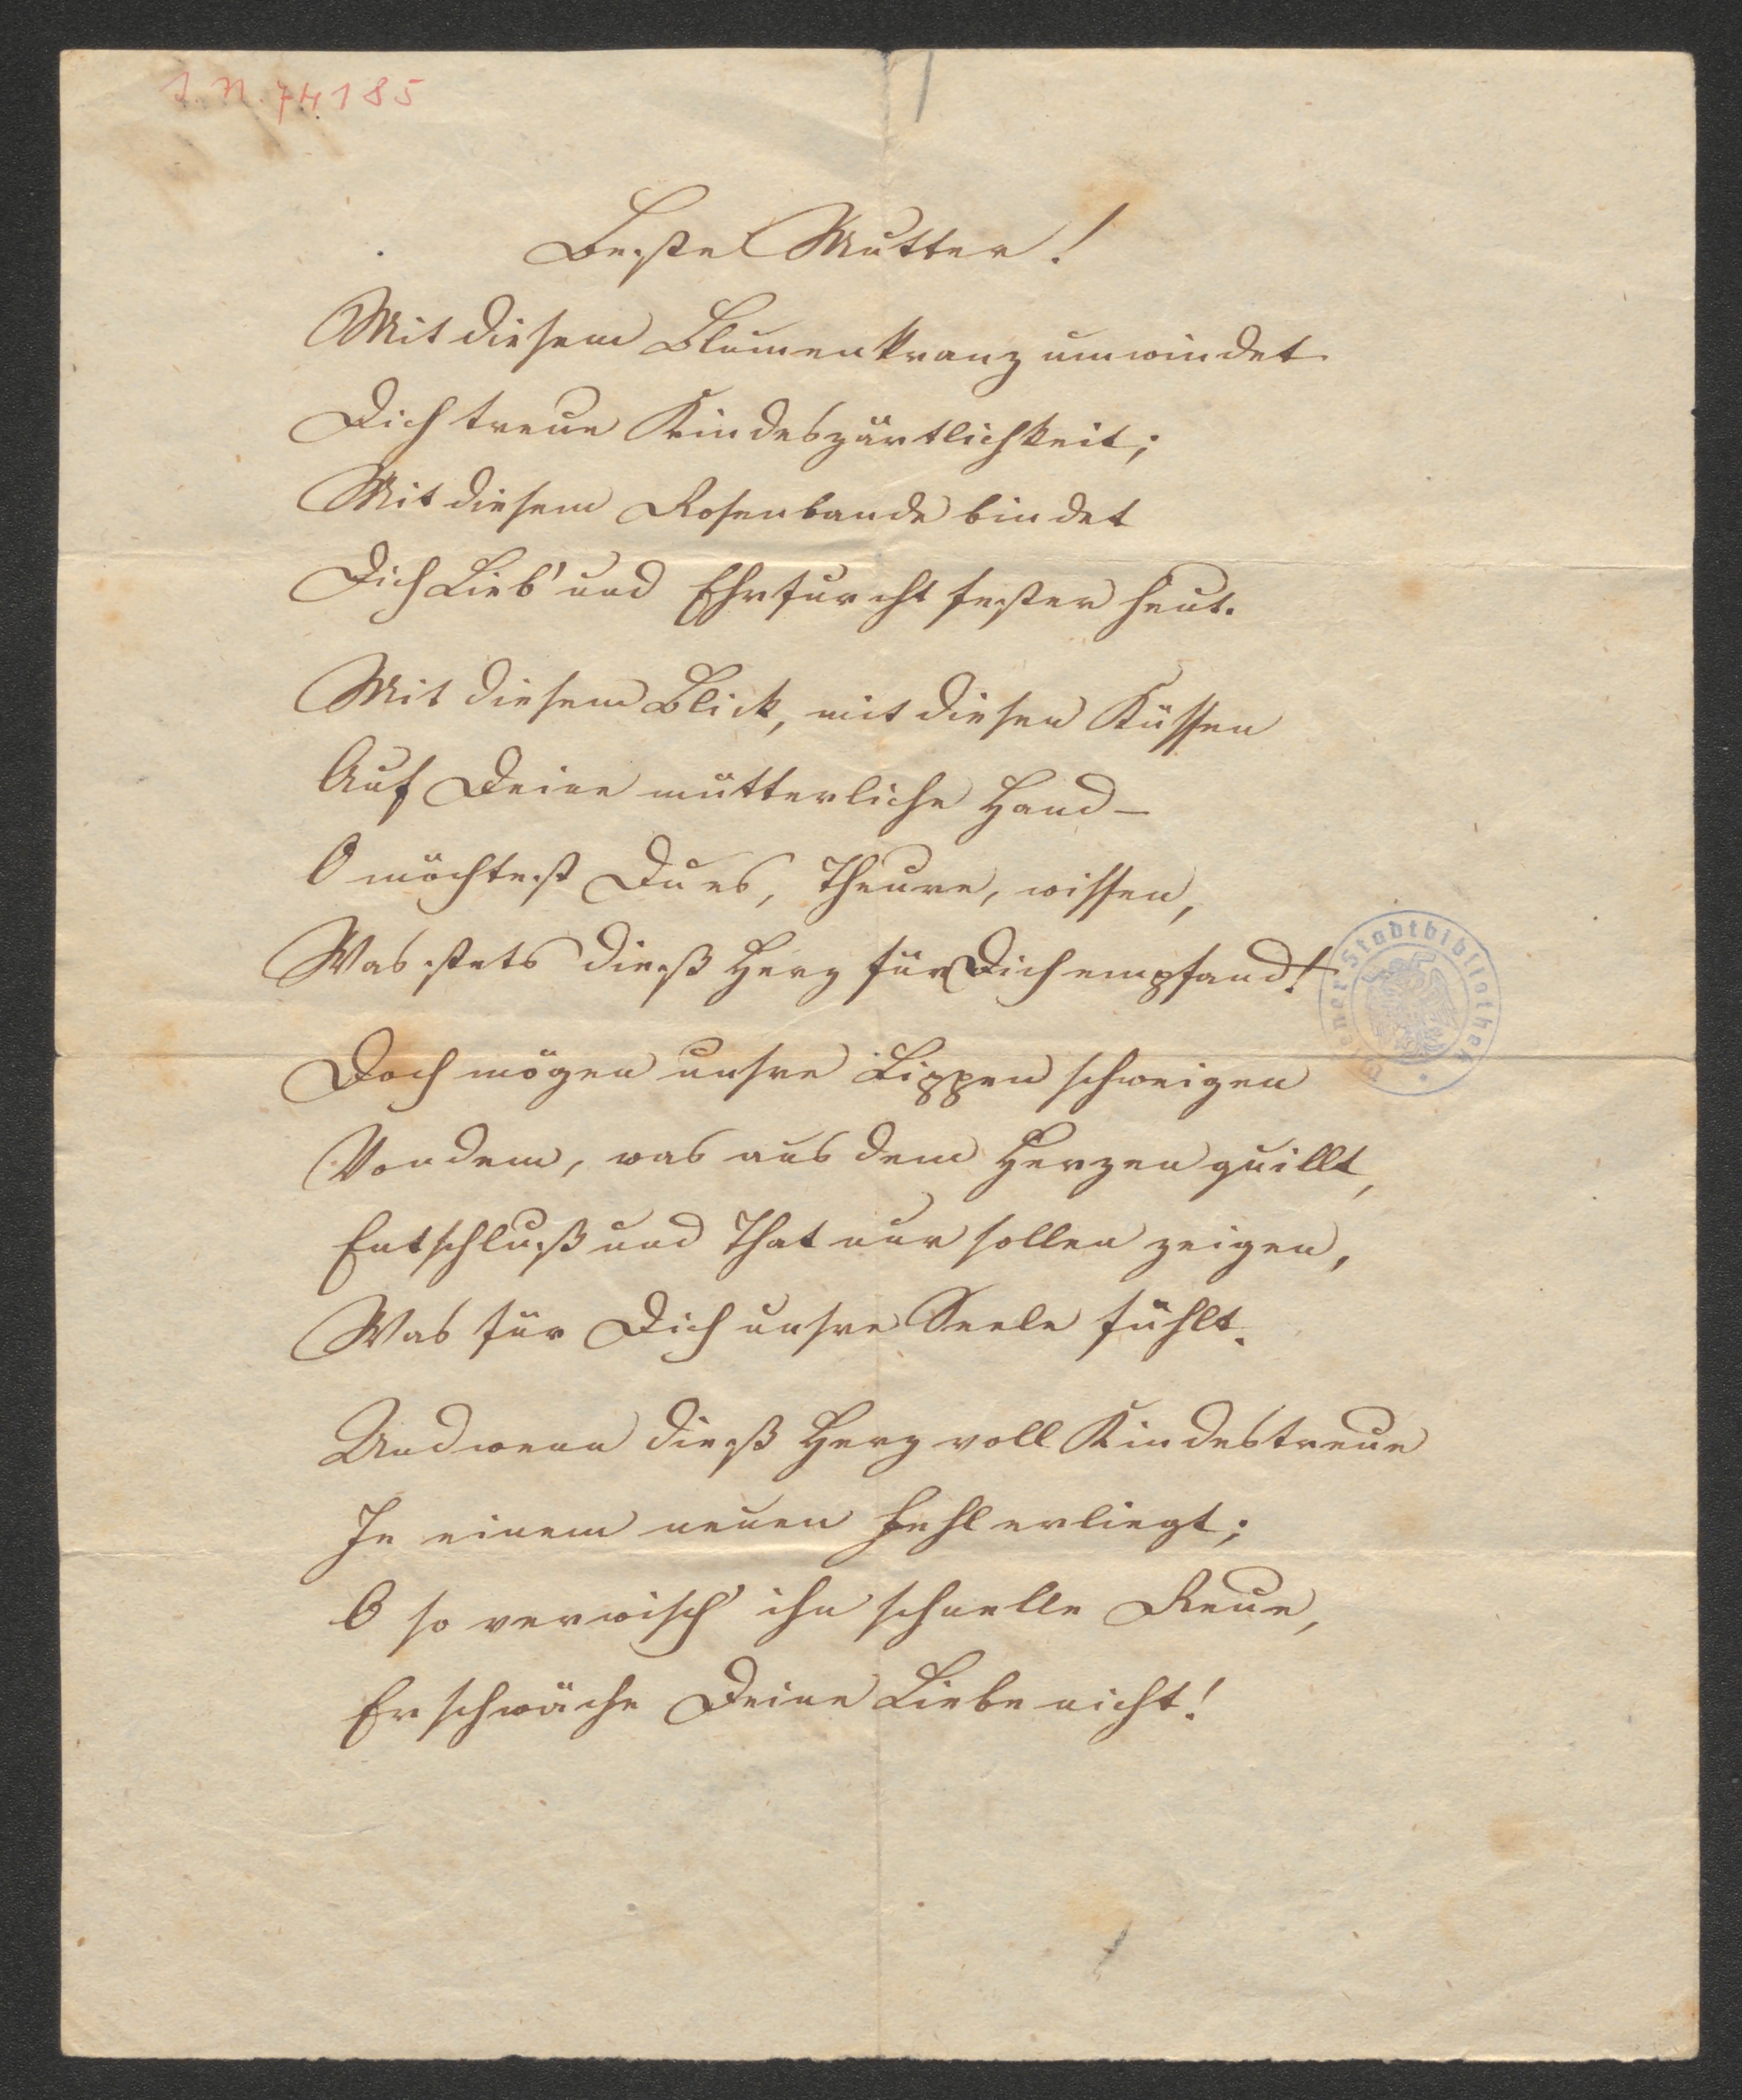 I.N. 74185
Beste Mutter!
Mit diesem Blumenkranz umwindet
Dich treue Kindeszärtlichkeit;
Mit diesem Rosenbande bindet
Dich Lieb' und Ehrfurcht fester heut.
Mit diesem Blick, mit diesen Küssen
Auf Deine mütterliche Hand –
O möchtest Du es, Theure, wissen,
Was stets dieß Herz für Dich empfand!
Wiener Stadtbibliothek
Doch mögen unsre Lippen schweigen
Von dem, was aus dem Herzen quillt,
Entschluß und That nur sollen zeigen,
Was für Dich unsre Seele fühlt.
Und wenn dieß Herz voll Kindestreue
In einem neuen Fehl erliegt;
O so verwisch' ihn schnelle Reue,
Er schwäche Deine Liebe nicht!